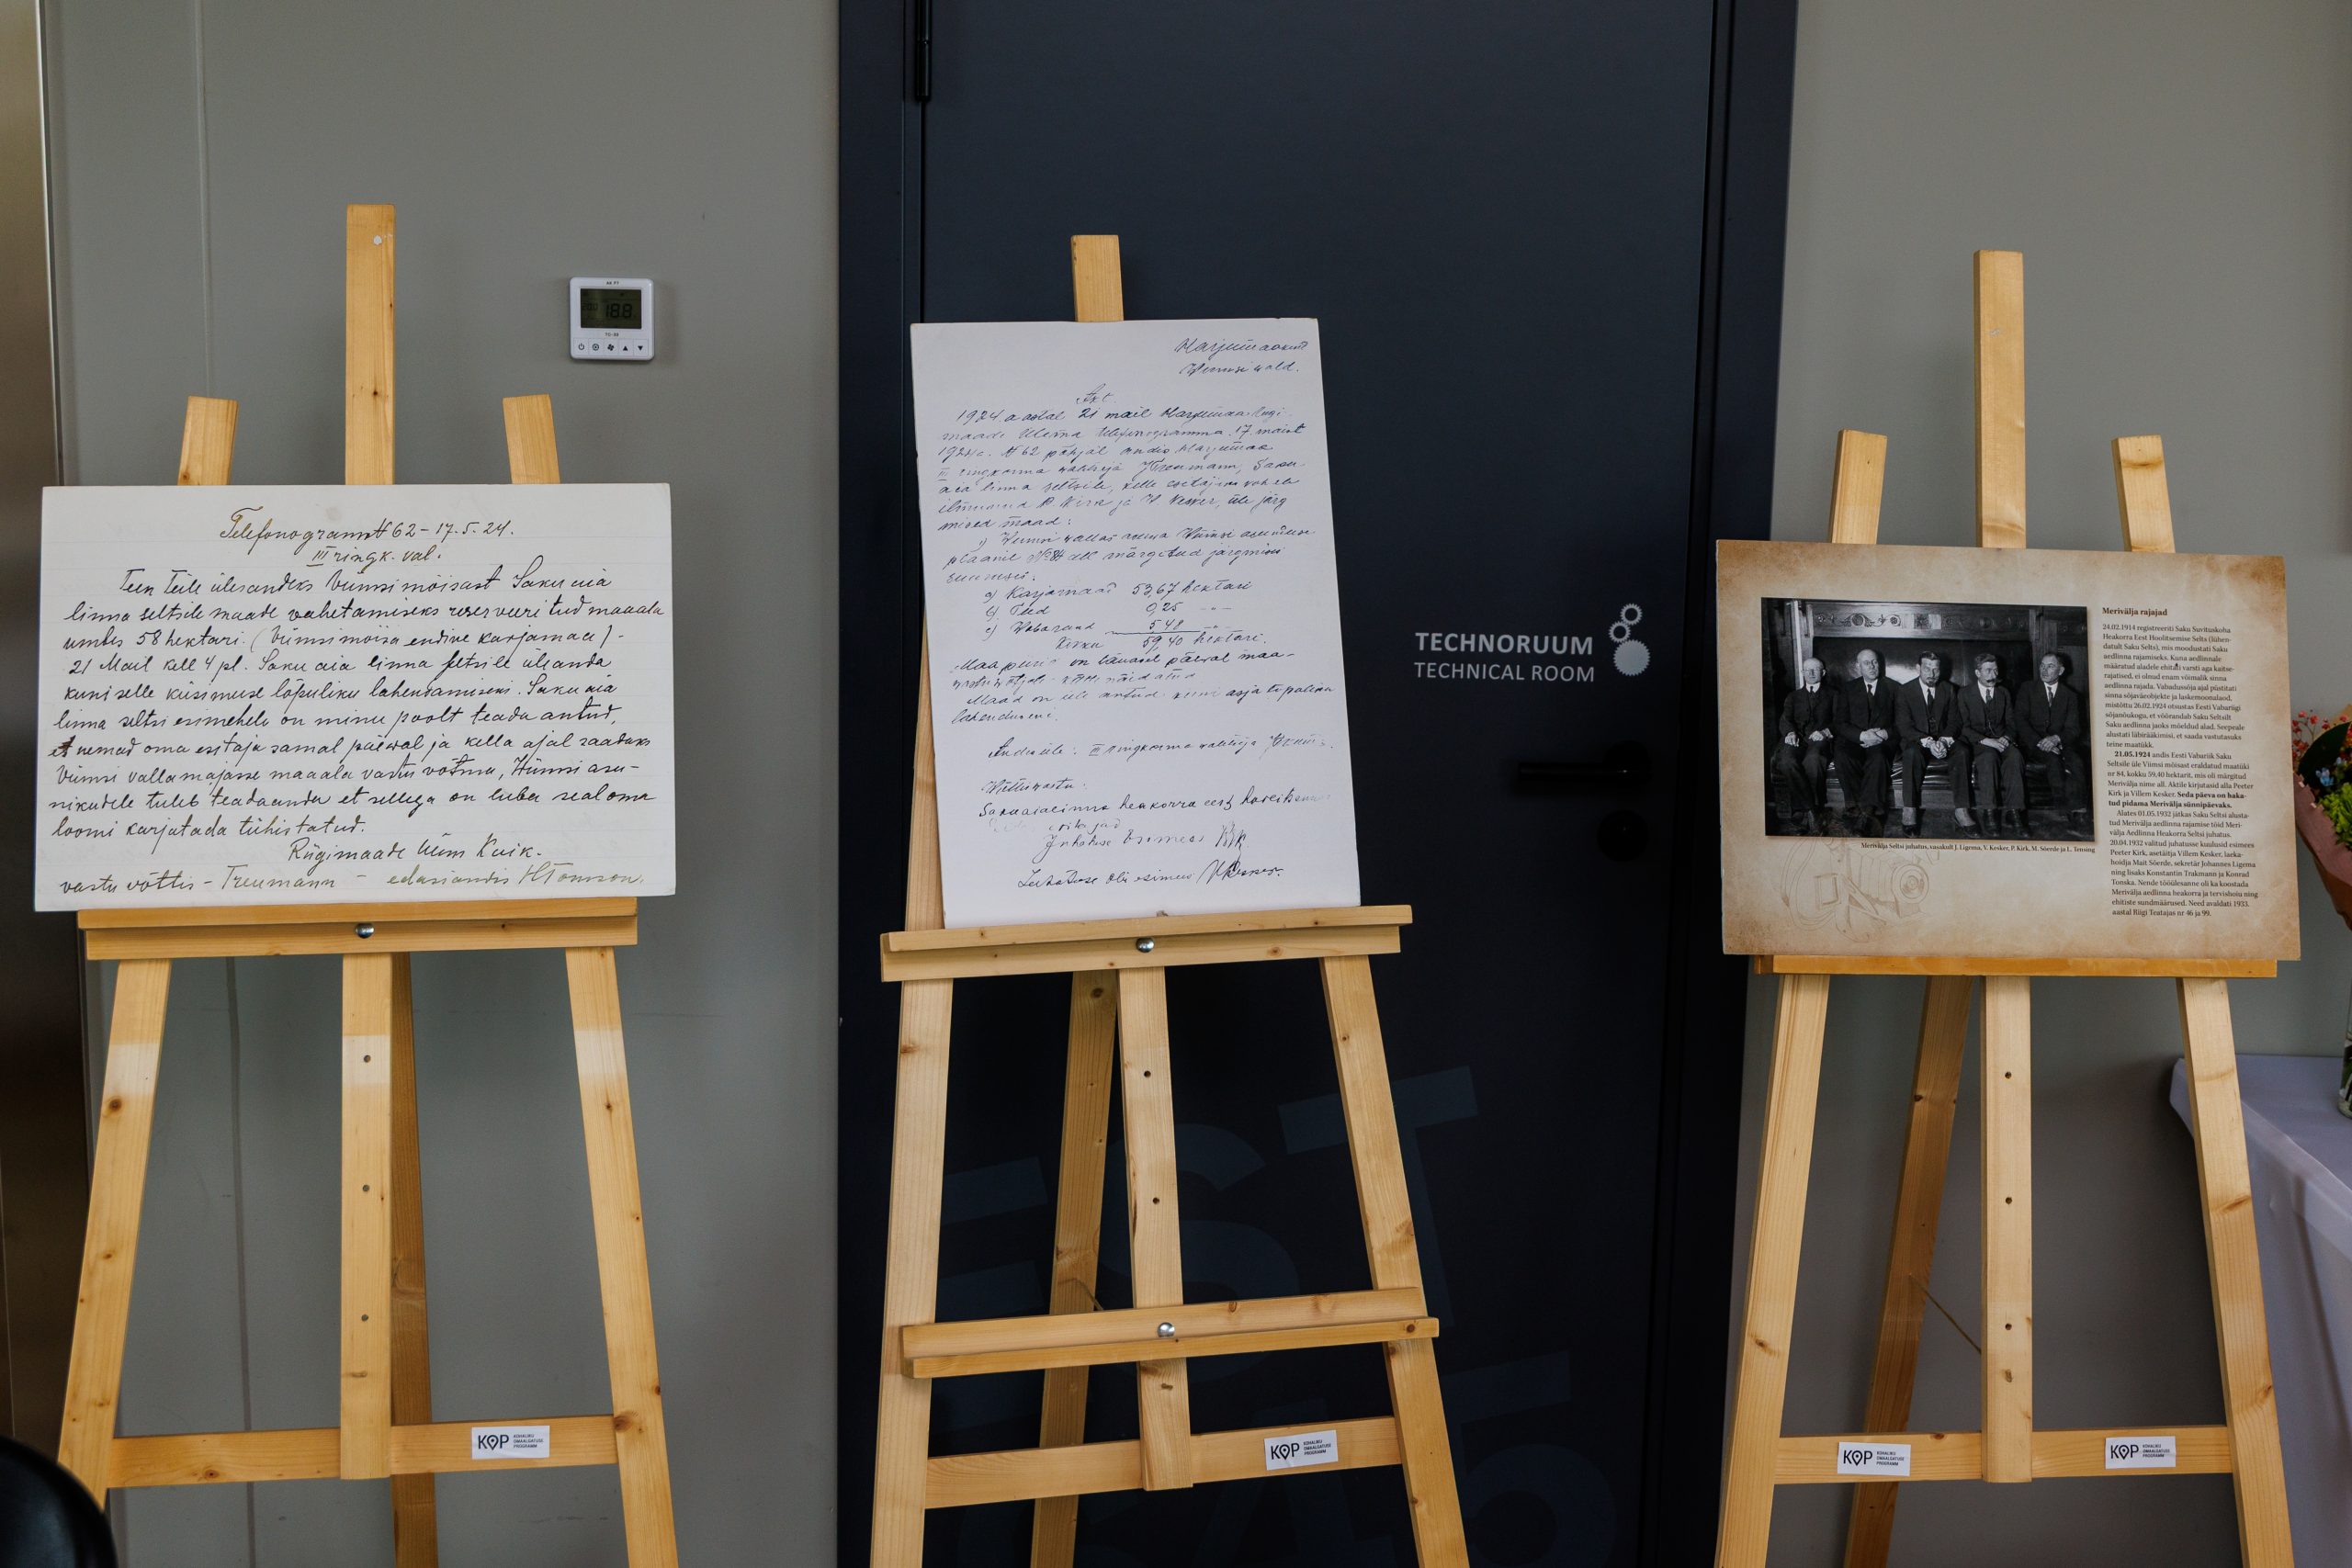 Telefonogramm N 62 – 17.5.24.
III ringk. val.
Teen Teile ülesandeks Viimsi mõisast Saku aia
linna seltsile maade vahetamiseks reserveeritud maaala
umbes 58 hektari. (Viimsi mõisa endine karjamaa) –
21 Mail kell 4 pl. Saku aia linna seltsile üleanda
kuni selle küsimuse lõpuliku lahendamiseni. Saku aia
linna seltsi esimehele on minu poolt teada antud,
et nemad oma esitaja samal päewal ja kella ajal saadaks
Viimsi vallamajasse maaala vastu võtma, Viimsi asu-
nikudele tuleb teadaanda et sellega on luba seal oma
loomi karjatada tühistatud.
Riigimaade Ülem Kaik.
vastu võttis – Treumann – edasiandis HTomson.
188
Harjumaakond
Wiimsi wald.
Akt.
1924 a astal 21 mail Harjumaa Riigi
maade Ülema telefonogramma 17 maist
1924 a. N 62 põhjal andis Harjumaa
III ringkonna walitseja Treumann, Saku-
aia linna seltsile, kelle esitajana
ilmunud P. Kirk ja W. Kesker, üle järg
mised maad:
1) Wiimsi wallas Wiimsi asunduse
plaanil No 84 all märgitud järgmisi
a) Karjamaad 53,67 hektari
b) Teed 0,25 –"–
c) 5,48 –"–
Kokku 59,40 hektari.
on tänasel päewal maa-
Maad on üle antud kuni asja lõpuliku
lahenduseni.
Andis üle: III ringkonna walitseja
Wõttis wastu:
Sakuaialinna heakorra eest
Juhatuse Esimees Kirk
Juhatuse abi esimees WKesker.
TECHNORUUM
TECHNICAL ROOM
Merivälja rajajad
24.02.1914 registreeriti Saku Suvituskoha
Heakorra Eest Hoolitsemise Selts (lühen-
datult Saku Selts), mis moodustati Saku
aedlinna rajamiseks. Kuna aedlinnale
määratud aladele ehitati varsti aga kaitse-
rajatised, ei olnud enam võimalik sinna
aedlinna rajada. Vabadussõja ajal püstitati
sinna sõjaväeobjekte ja laskemoonalaod,
mistõttu 26.02.1924 otsustas Eesti Vabariigi
sõjanõukogu, et võõrandab Saku Seltsilt
Saku aedlinna jaoks mõeldud alad. Seepeale
alustati läbirääkimisi, et saada vastutasuks
teine maatükk.
21.05.1924 andis Eesti Vabariik Saku
Seltsile üle Viimsi mõisast eraldatud maatüki
nr 84, kokku 59,40 hektarit, mis oli märgitud
Merivälja nime all. Aktile kirjutasid alla Peeter
Kirk ja Villem Kesker. Seda päeva on haka-
tud pidama Merivälja sünnipäevaks.
Alates 01.05.1932 jätkas Saku Seltsi alusta-
tud Merivälja aedlinna rajamise töid Meri-
välja Aedlinna Heakorra Seltsi juhatus.
20.04.1932 valitud juhatusse kuulusid esimees
Peeter Kirk, asetäitja Villem Kesker, laeka-
hoidja Mait Söerde, sekretär Johannes Ligema
ning lisaks Konstantin Trakmann ja Konrad
Tonska. Nende tööülesanne oli ka koostada
Merivälja aedlinna heakorra ja tervishoiu ning
ehitiste sundmäärused. Need avaldati 1933.
aastal Riigi Teatajas nr 46 ja 99.
Merivälja Seltsi juhatus, vasakult J. Ligema, V. Kesker, P. Kirk, M. Söerde ja L. Tensing
KOP KOHALIKU OMAALGATUSE PROGRAMM
KOP KOHALIKU OMAALGATUSE PROGRAMM
KOP KOHALIKU OMAALGATUSE PROGRAMM
KOP KOHALIKU OMAALGATUSE PROGRAMM